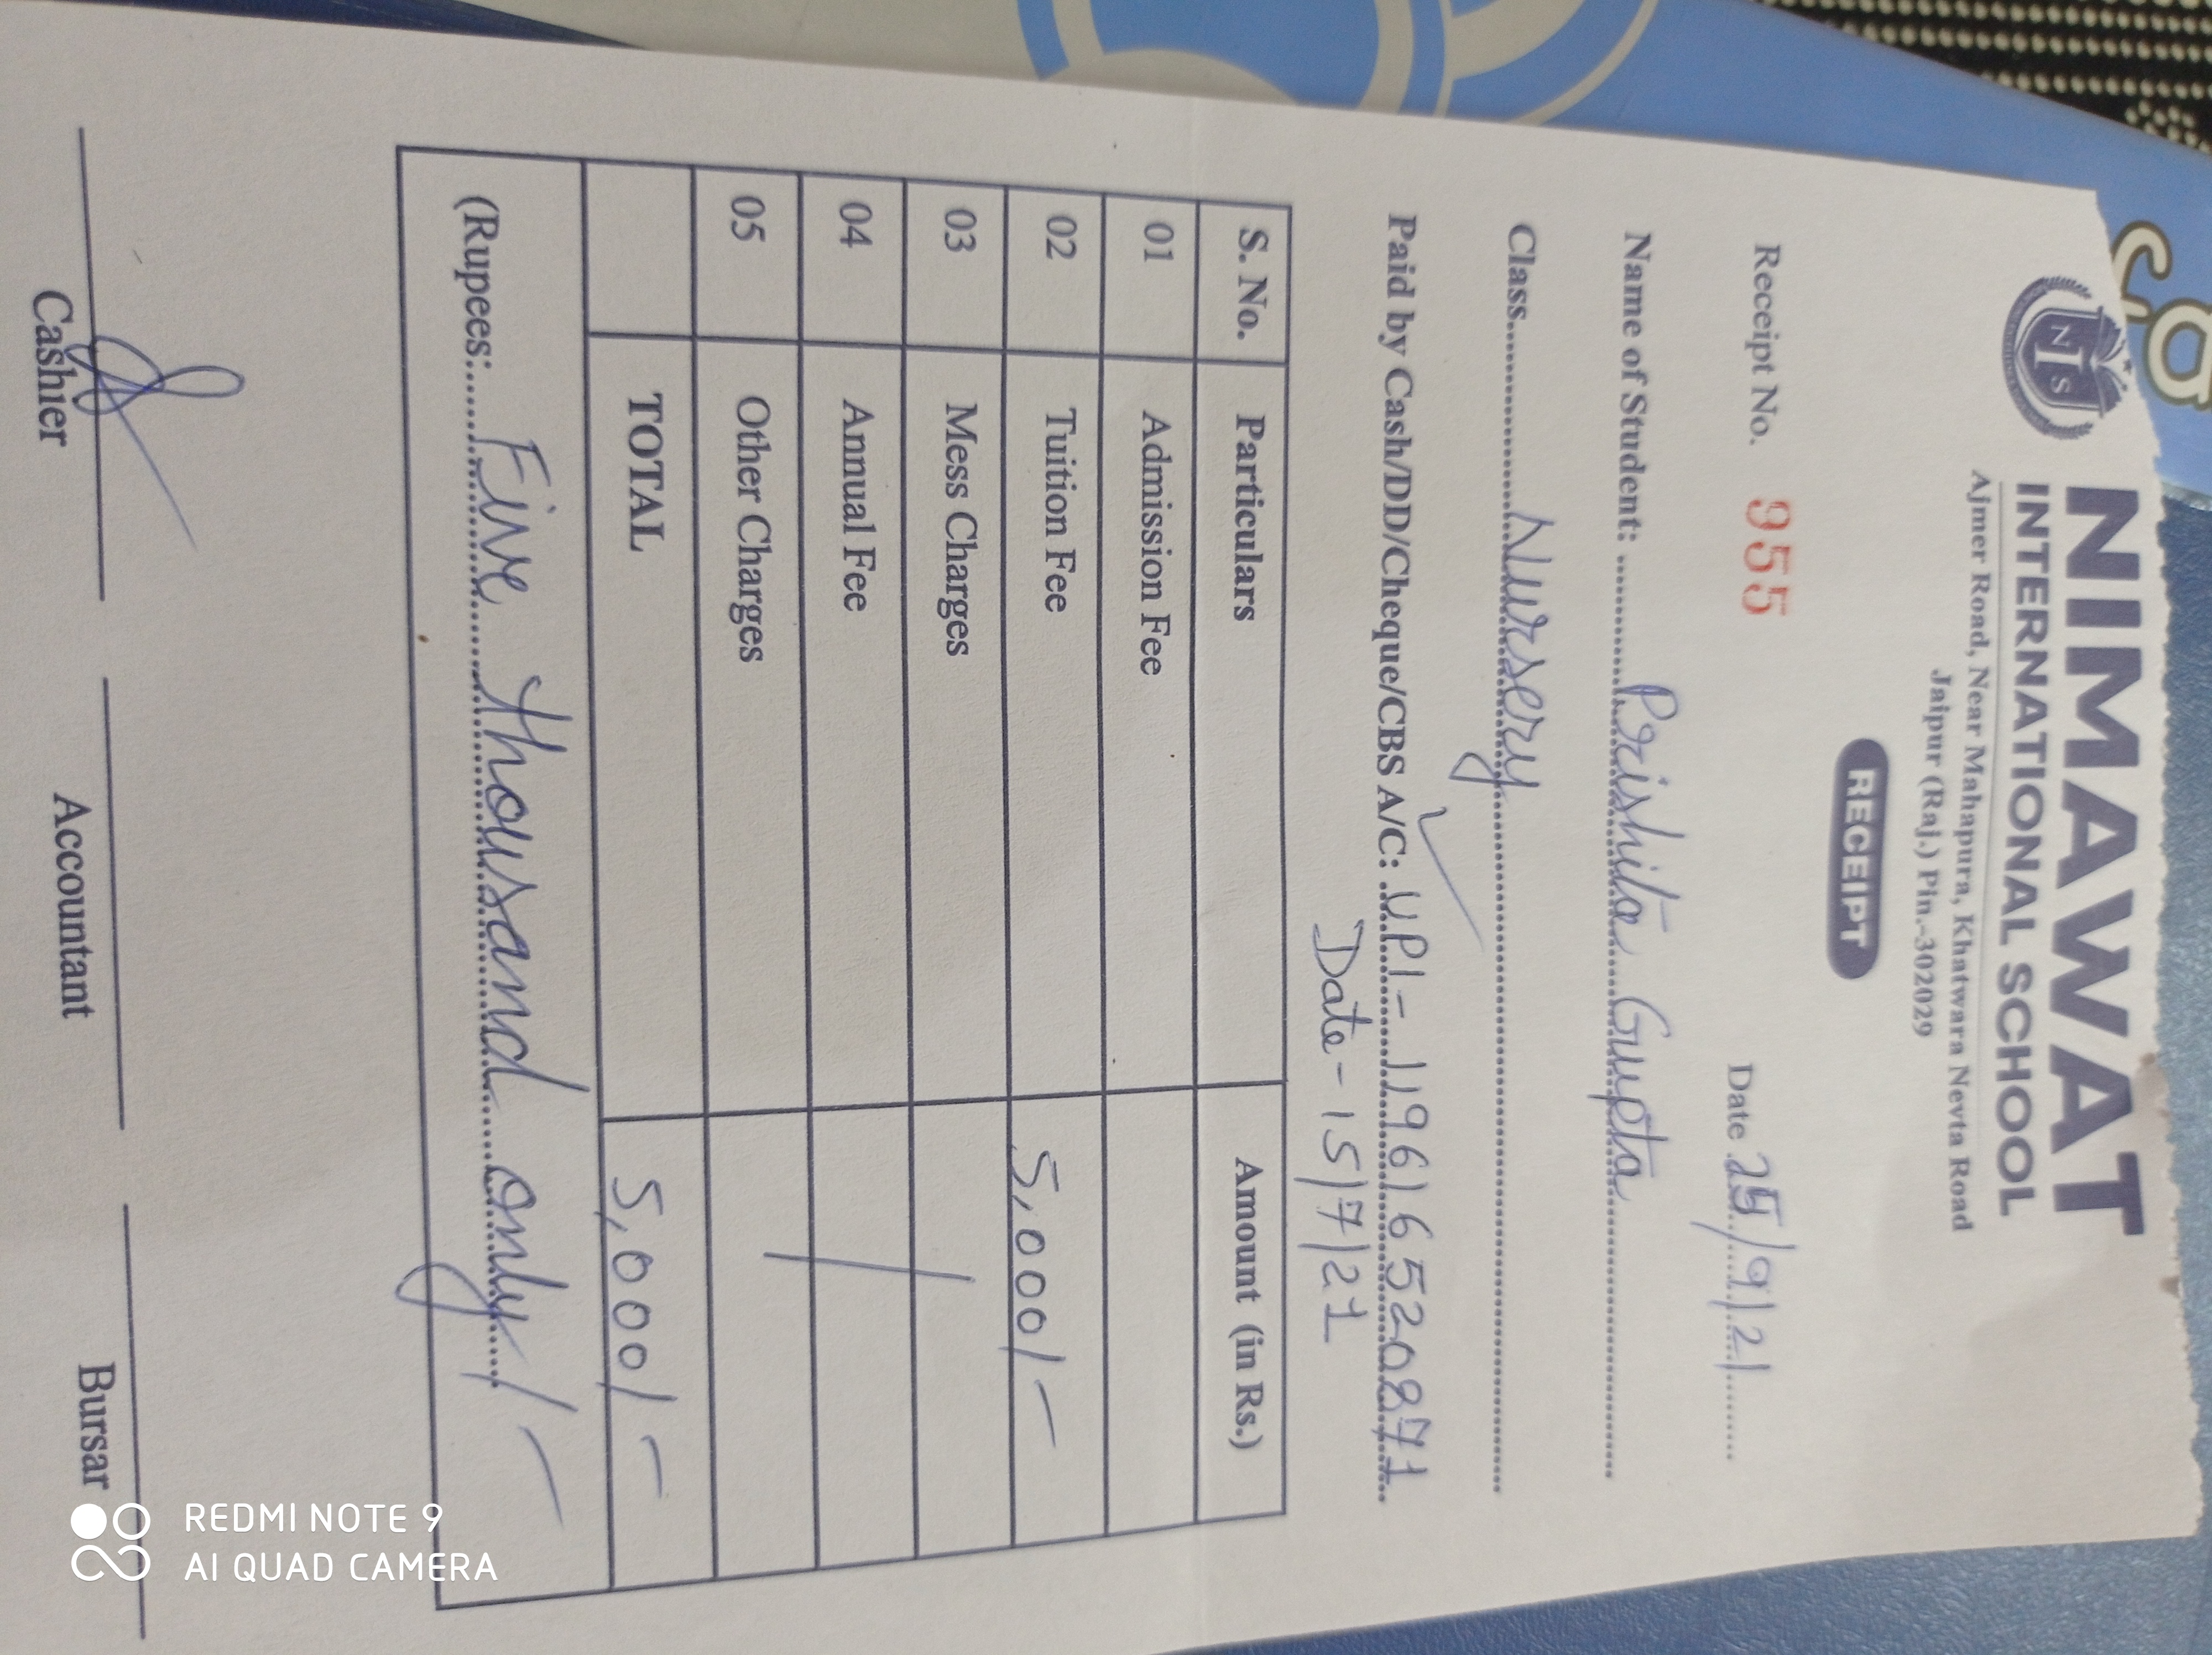 NIMAWAT
INTERNATIONAL SCHOOL
Ajmer Road, Near Mahapura, Khatwara Nevta Road
Jaipur (Raj.) Pin.-302029
RECEIPT
Receipt No. 955 Date 25/9/21
Name of Student: Prishita Gupta
Class Nursery
Paid by Cash/DD/Cheque/CBS A/C: UPI- 119616520871
Date- 15/7/21
S. No. Particulars Amount (in Rs.)
01 Admission Fee
02 Tuition Fee 5,000/-
03 Mess Charges
04 Annual Fee
05 Other Charges
TOTAL 5,000/-
(Rupees: Five thousand only/-
Cashier Accountant Bursar
REDMI NOTE 9
AI QUAD CAMERA
NIS
ca